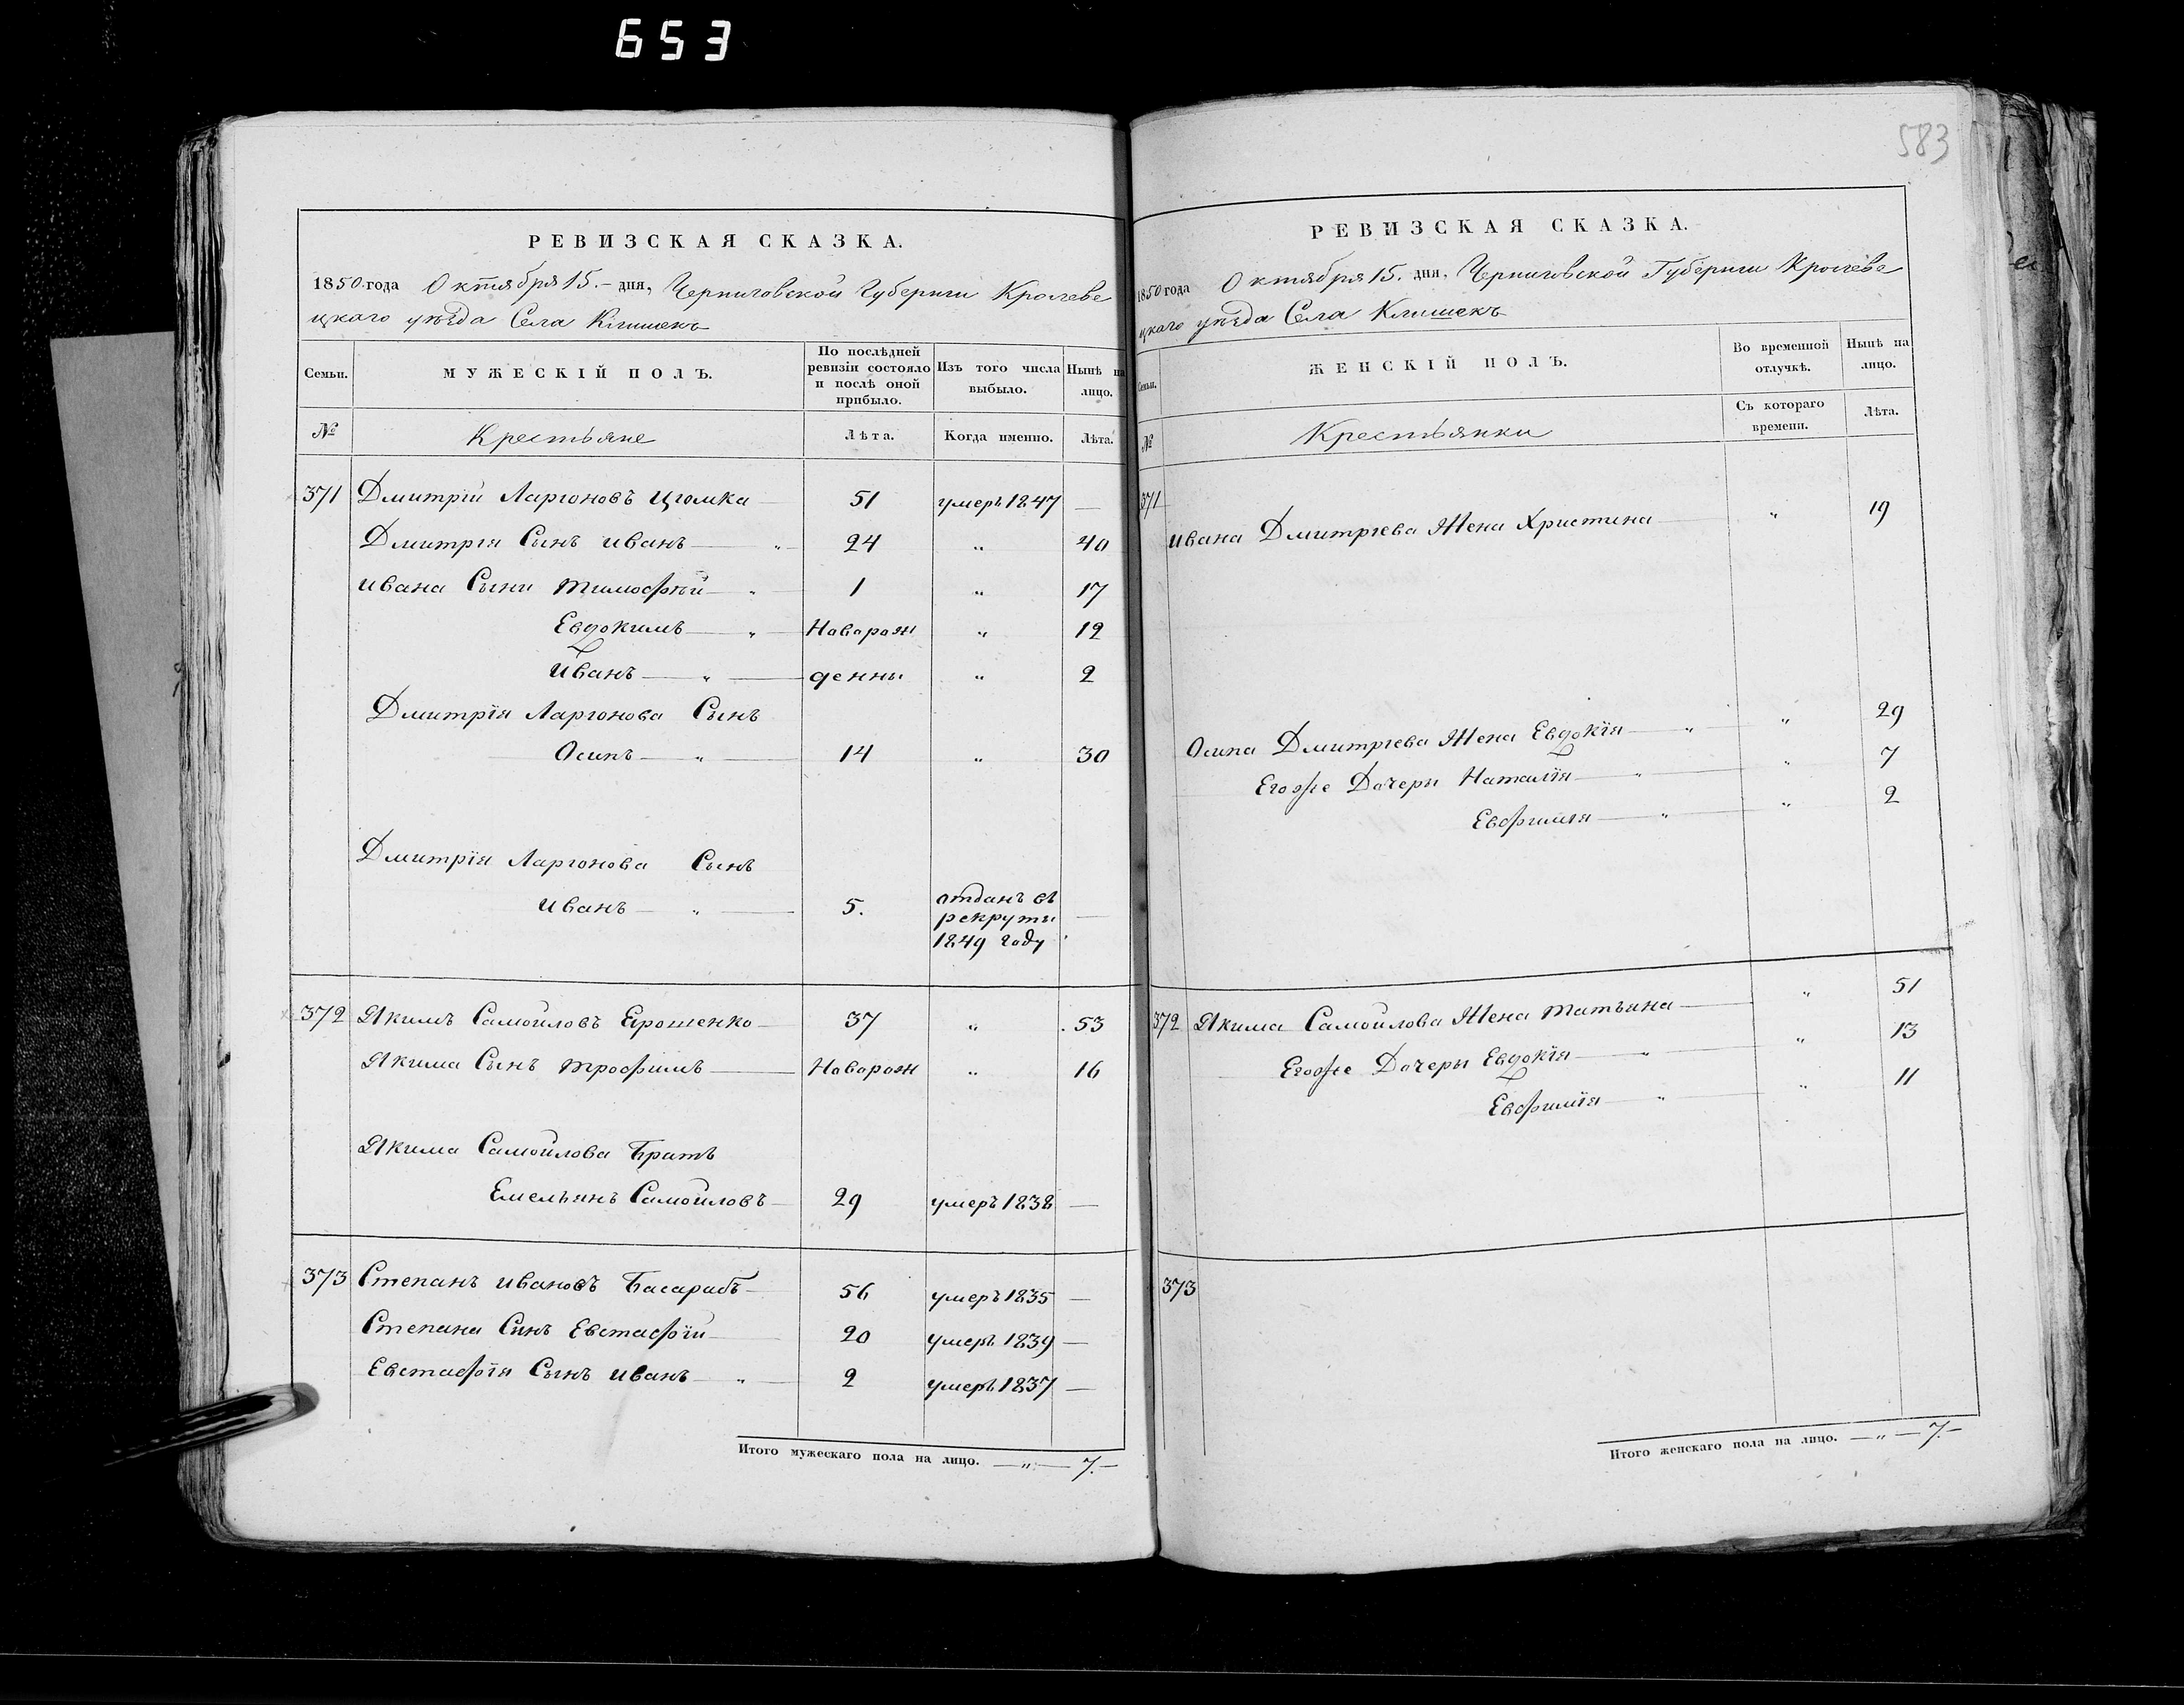 653
РЕВИЗСКАЯ СКАЗКА.
1850 года Октября 15.- дня, Черниговской Губернии Кролеве
цкаго уѣзда Села Клишекъ
Семьи.
МУЖЕСКІЙ ПОЛЪ.
По послѣдней ревизіи состояло и послѣ оной прибыло.
Изъ того числа выбыло.
Нынѣ на лицо.
№ Крестьяне Лѣта. Когда именно. Лѣта.
371 Дмитрій Ларіоновъ Цiомка 51 умеръ 1847 —
Дмитрія Сынъ Иванъ — „ 24 „ 40
Ивана Сыни Тимофѣй — „ 1 „ 17
Евдокимъ — „ Наворож „ 12
Иванъ — „ — денны „ 2
Дмитрія Ларіонова Сынъ
Осипъ — „ — 14 „ 30
Дмитрія Ларіонова Сынъ
Иванъ — „ — 5. отданъ въ
рекруты —
1849 году
372 Якимъ Самойловъ Ерошенко 37 „ 53
Якима Сынъ Трофимъ — Наворож „ 16
Якима Самойлова Братъ
Емельянъ Самойловъ 29 умеръ 1838 —
373 Степанъ Ивановъ Басарабъ 56 умеръ 1835 —
Степана Синъ Евстафій 20 умеръ 1839 —
Евстафія Сынъ Иванъ — „ 2 умеръ 1837 —
Итого мужескаго пола на лицо. — „ — 7.—
583
РЕВИЗСКАЯ СКАЗКА.
1850 года Октября 15. дня, Черниговской Губернии Кролеве
цкаго уѣзда Села Клишекъ
Семьи.
ЖЕНСКІЙ ПОЛЪ.
Во временной отлучкѣ.
Нынѣ на лицо.
№ Крестьянки Съ котораго времени. Лѣта.
371
Ивана Дмитрiева Жена Христина — „ 19
Осипа Дмитрiева Жена Евдокія — „ „ 29
Егоже Дочеры Наталія — „ „ 7
Евфимія — „ „ 2
372 Якима Самойлова Жена Татьяна — „ 51
Егоже Дочеры Евдокія — „ „ 13
Евфимія — „ „ 11
373
Итого женскаго пола на лицо. — „ — 7.—